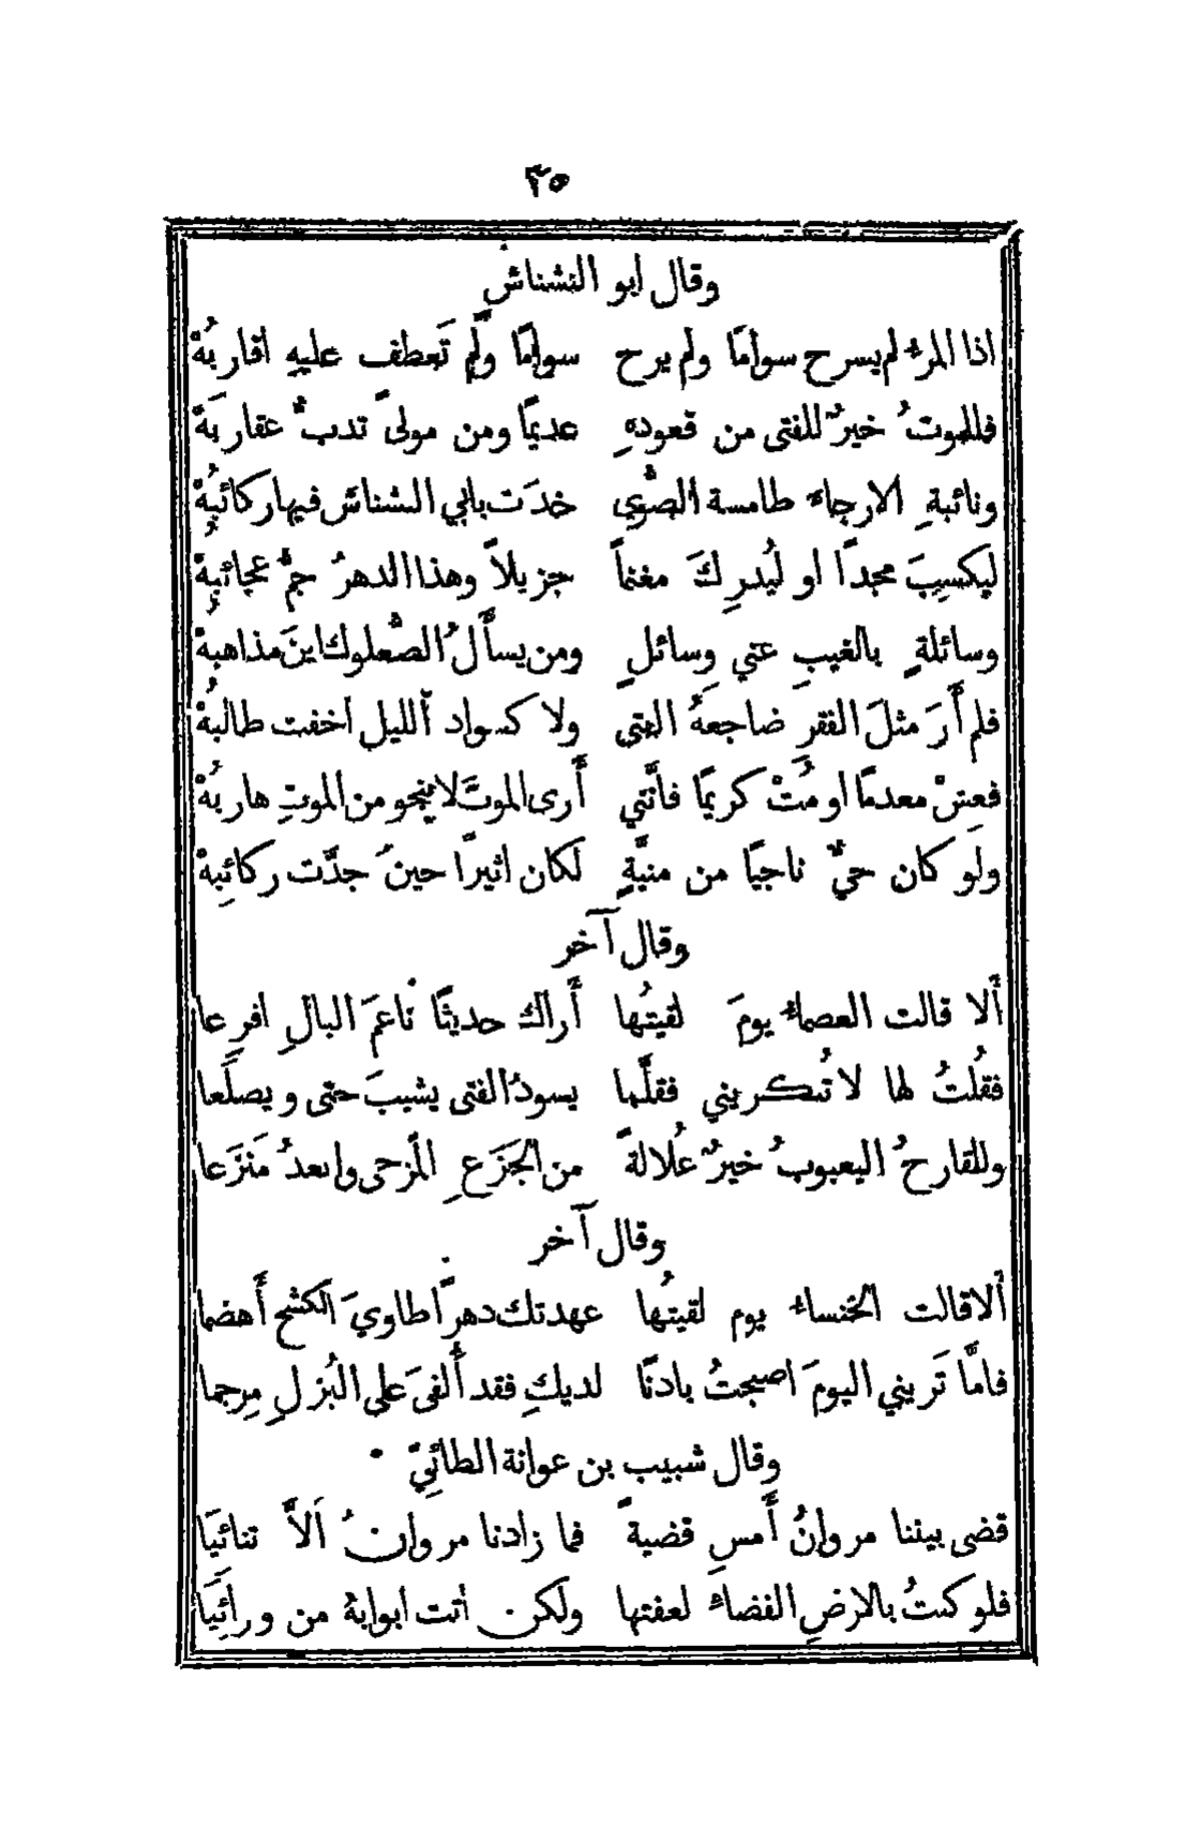 ٣٥
وقال ابو النشناش
اذا المرء لم يسرح سوامًا ولم يرح سوامًا ولَم تَعطف عليهِ اقاربُهْ
فللموتُ خيرٌ للفتى من قعودهِ عديمًا ومن مولىً تدبُّ عقاربَهْ
ونائبةِ الارجاءَ طامسة الصُّوي خدَت بابي النشناش فيها ركائبُهْ
ليكسِبَ مجدًا او ليُدرِكَ مغنماً جزيلاً وهذا الدهرُ جمٌّ عجائبُهْ
وسائلةٍ بالغيبِ عني وسائلٍ ومن يسأَلُ الصُّعلوك اينَ مذاهبُهْ
فلم أَرَ مثلَ الفقرِ ضاجعهُ الفتى ولا كسواد الليل اخفت طالبُهْ
فعِشْ معدمًا او مُتْ كريمًا فانَّني أَرى الموتَ لا ينجو من الموتِ هاربُهْ
ولَو كان حيٌّ ناجيًا من منيَّةٍ لكان اثيرًا حينَ جدَّت ركائبِهْ
وقال آخر
أَلا قالت العصماءُ يومَ لقيتُها أَراك حديثًا ناعمَ البالِ افرعا
فقُلتُ لها لا تُنكريني فقلَّما يسودُ الفتى يشيبَ حتى ويصلَعا
وللقارحُ اليعبوبُ خيرٌ عُلالةً من الجَزَعِ المزجى وابعدُ مَنزَعا
وقال آخر
ألا قالت الخنساء يوم لقيتُها عهدتك دهرًا طاويَ الكشح أَهضما
فامَّا تَريني اليومَ اصبحتُ بادنًا لديكِ فقد أُلفىَ على البُزلِ مِرجما
وقال شبيب بن عوانة الطائيّ
قضى بيننا مروانُ أَمسِ قضيةً فما زادنا مروانُ اَلاَّ تنائيَا
فلو كنتُ بالارضِ الفضاء لعفتها ولكن أتت ابوابهُ من ورائِيَا